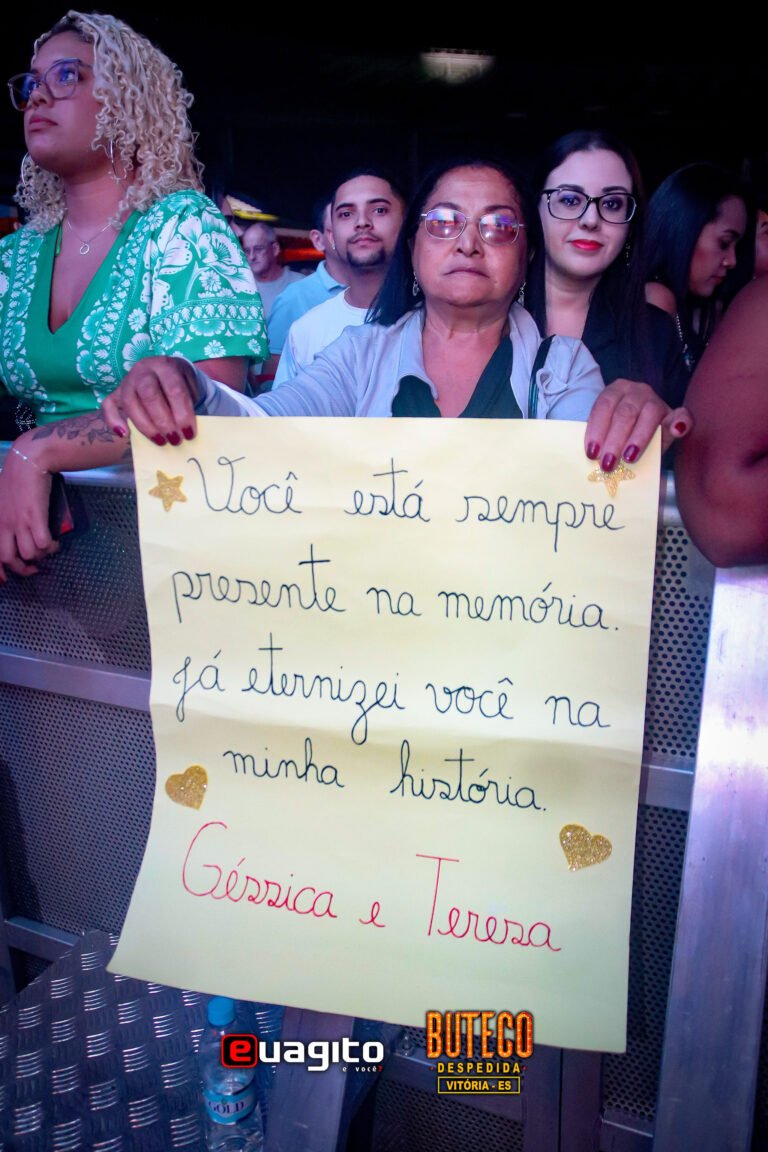 Você está sempre
presente na memória.
Já eternizei você na
minha história.
Géssica e Teresa
GOLD
euagito
e você?
BUTECO
DESPEDIDA
VITÓRIA - ES